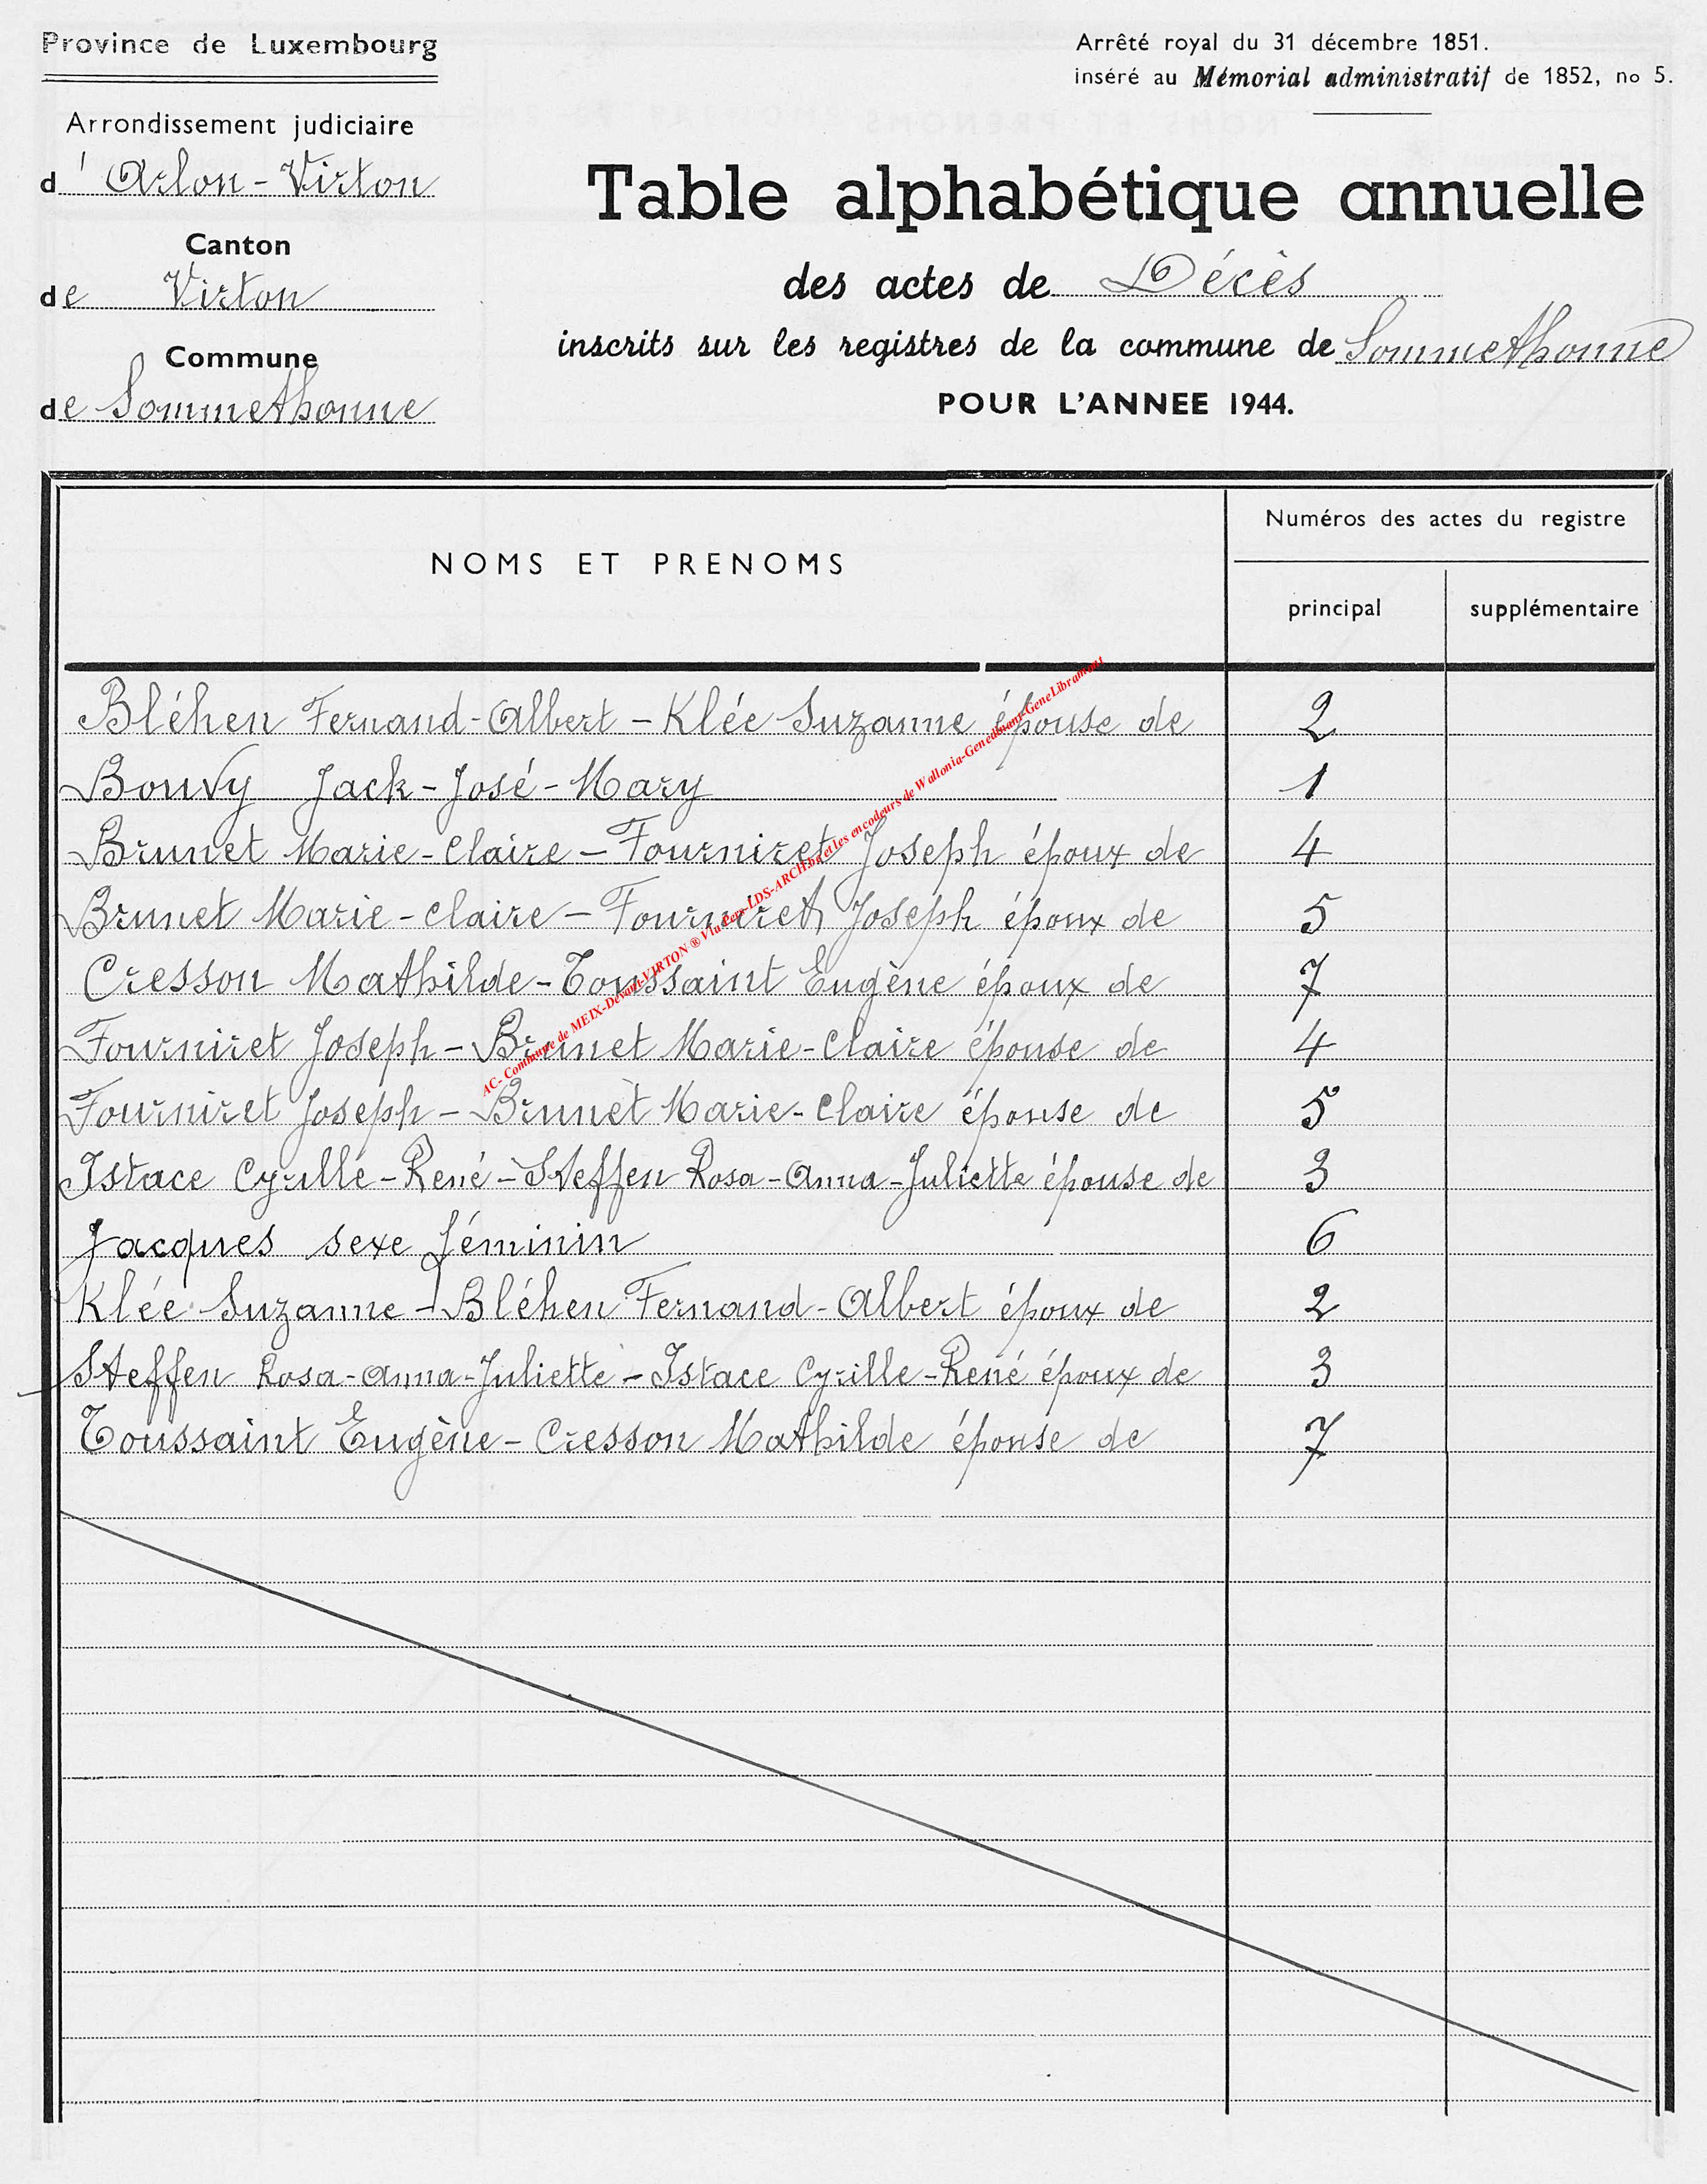 Province de Luxembourg
Arrondissement judiciaire
d'Arlon-Virton
Canton
de Virton
Commune
de Sommethonne
Arrêté royal du 31 décembre 1851.
inséré au Mémorial administratif de 1852, no 5.
Table alphabétique annuelle
des actes de Décès
inscrits sur les registres de la commune de Sommethonne
POUR L'ANNEE 1944.
NOMS ET PRENOMS
Numéros des actes du registre
principal supplémentaire
Bléhen Fernand-Albert – Klée Suzanne épouse de 2
Bouvy Jack-José-Mary 1
Brunet Marie-Claire – Fourniret Joseph époux de 4
Brunet Marie-Claire – Fourniret Joseph époux de 5
Cresson Mathilde-Toussaint Eugène époux de 7
Fourniret Joseph – Brunet Marie-Claire épouse de 4
Fourniret Joseph – Brunet Marie-Claire épouse de 5
Istace Cyrille-René – Steffen Rosa-Anna-Juliette épouse de 3
Jacques sexe féminin 6
Klée Suzanne – Bléhen Fernand-Albert époux de 2
Steffen Rosa-Anna-Juliette – Istace Cyrille-René époux de 3
Toussaint Eugène – Cresson Mathilde épouse de 7
AC- Commune de MEIX-Devant-VIRTON ® Via Pers-LDS-ARCH.be et les encodeurs de Wallonia-Geneduane-GeneLibramont